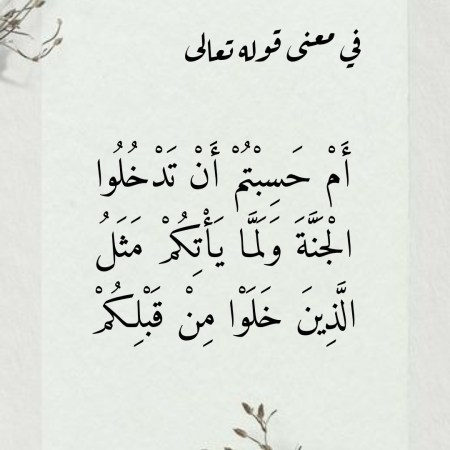 في معنى قوله تعالى
أَمْ حَسِبْتُمْ أَنْ تَدْخُلُوا
الْجَنَّةَ وَلَمَّا يَأْتِكُمْ مَثَلُ
الَّذِينَ خَلَوْا مِنْ قَبْلِكُمْ